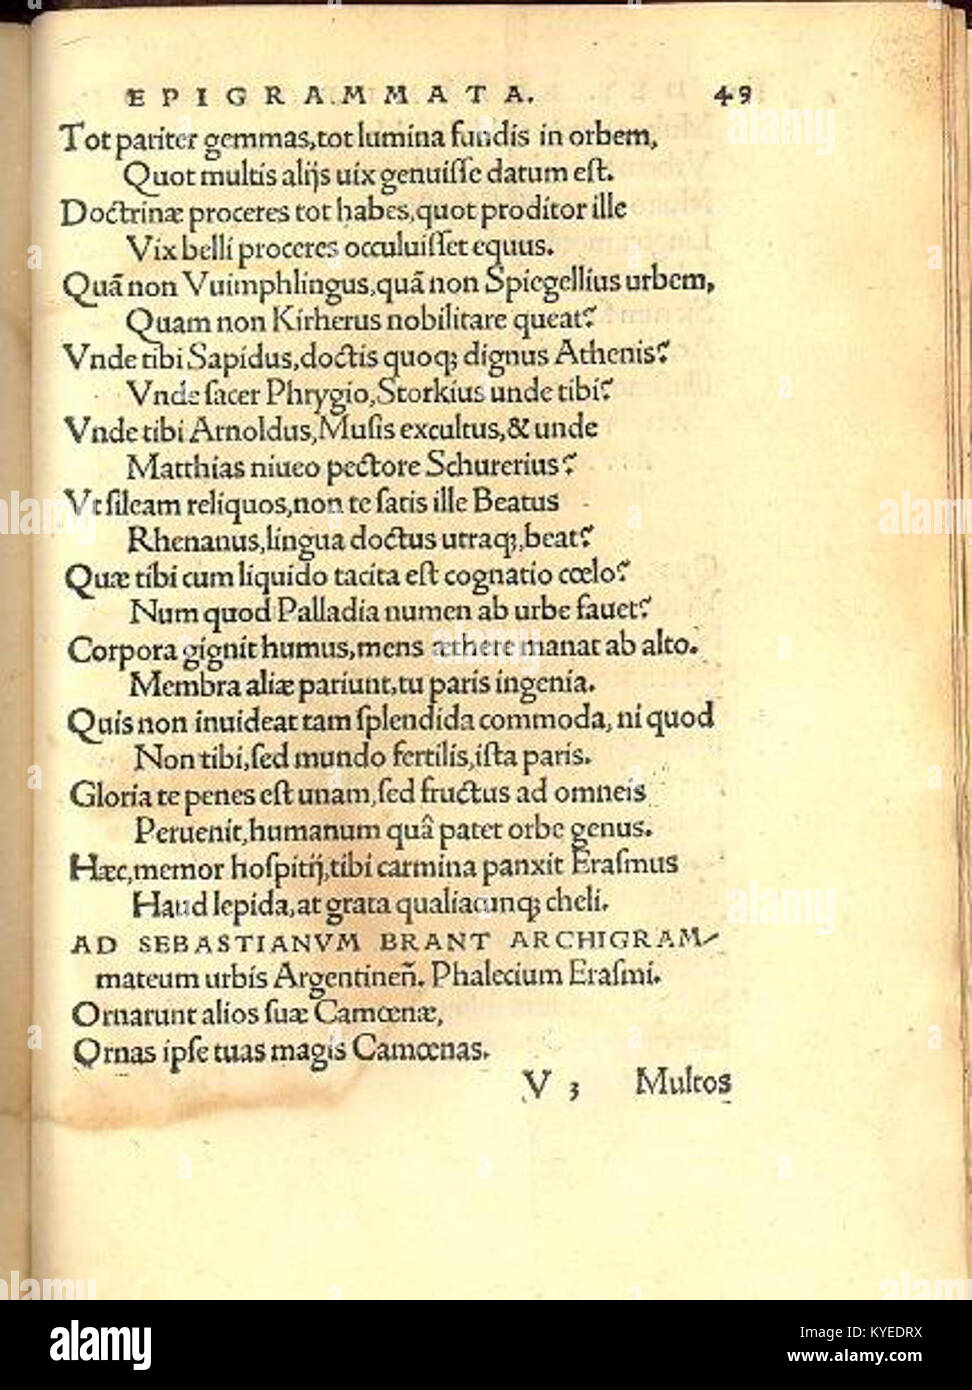 EPIGRAMMATA. 49
Tot pariter gemmas,tot lumina fundis in orbem,
Quot multis alijs uix genuiſſe datum eſt.
Doctrinæ proceres tot habes,quot proditor ille
Vix belli proceres occuluiſſet equus.
Quã non Vuimphlingus,quã non Spiegellius urbem,
Quam non Kirherus nobilitare queat?
Vnde tibi Sapidus,doctis quoqꝫ dignus Athenis?
Vnde ſacer Phrygio,Storkius unde tibi?
Vnde tibi Arnoldus,Muſis excultus,& unde
Matthias niueo pectore Schurerius?
Vt ſileam reliquos,non te ſatis ille Beatus
Rhenanus,lingua doctus utraqꝫ,beat?
Quæ tibi cum liquido tacita eſt cognatio cœlo?
Num quod Palladia numen ab urbe fauet?
Corpora gignit humus,mens æthere manat ab alto.
Membra aliæ pariunt,tu paris ingenia.
Quis non inuideat tam ſplendida commoda, ni quod
Non tibi,ſed mundo fertilis,iſta paris.
Gloria te penes eſt unam,ſed fructus ad omneis
Peruenit,humanum quâ patet orbe genus.
Hæc,memor hoſpitij,tibi carmina panxit Eraſmus
Haud lepida,at grata qualiacunqꝫ cheli.
AD SEBASTIANVM BRANT ARCHIGRAM-
mateum urbis Argentineñ. Phalecium Eraſmi.
Ornarunt alios ſuæ Camœnæ,
Ornas ipſe tuas magis Camœnas.
V 3 Multos
alamy
Image ID: KYEDRX
www.alamy.com